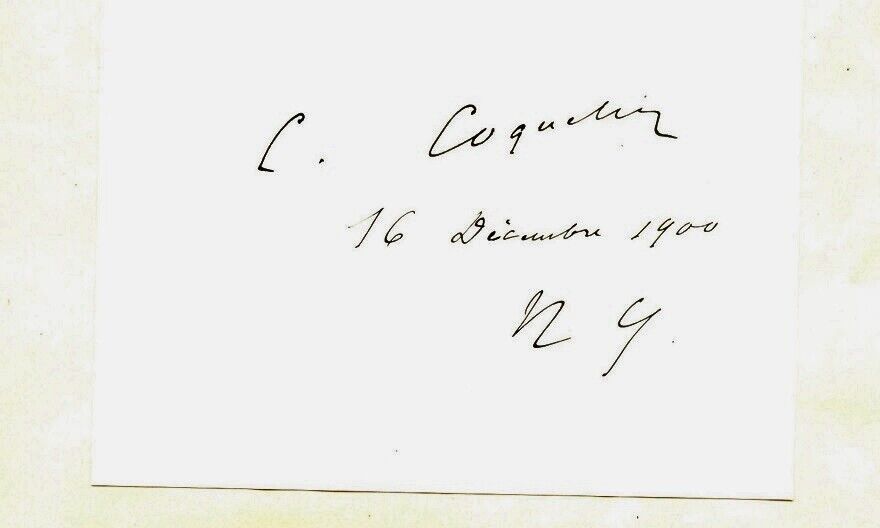 C. Coquelin
16 Décembre 1900
N Y.